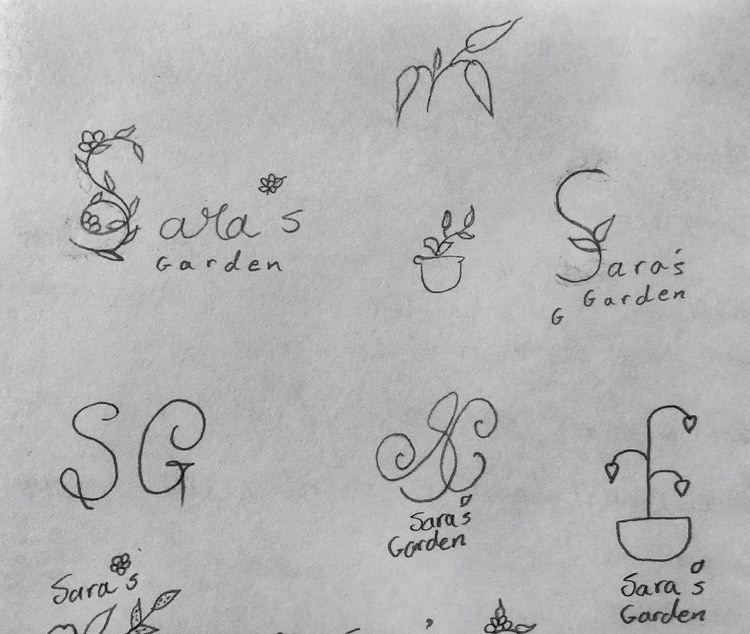 Sara's
Garden
Sara's
Garden
G
SG
SG
Sara's
Garden
Sara's
Garden
Sara's